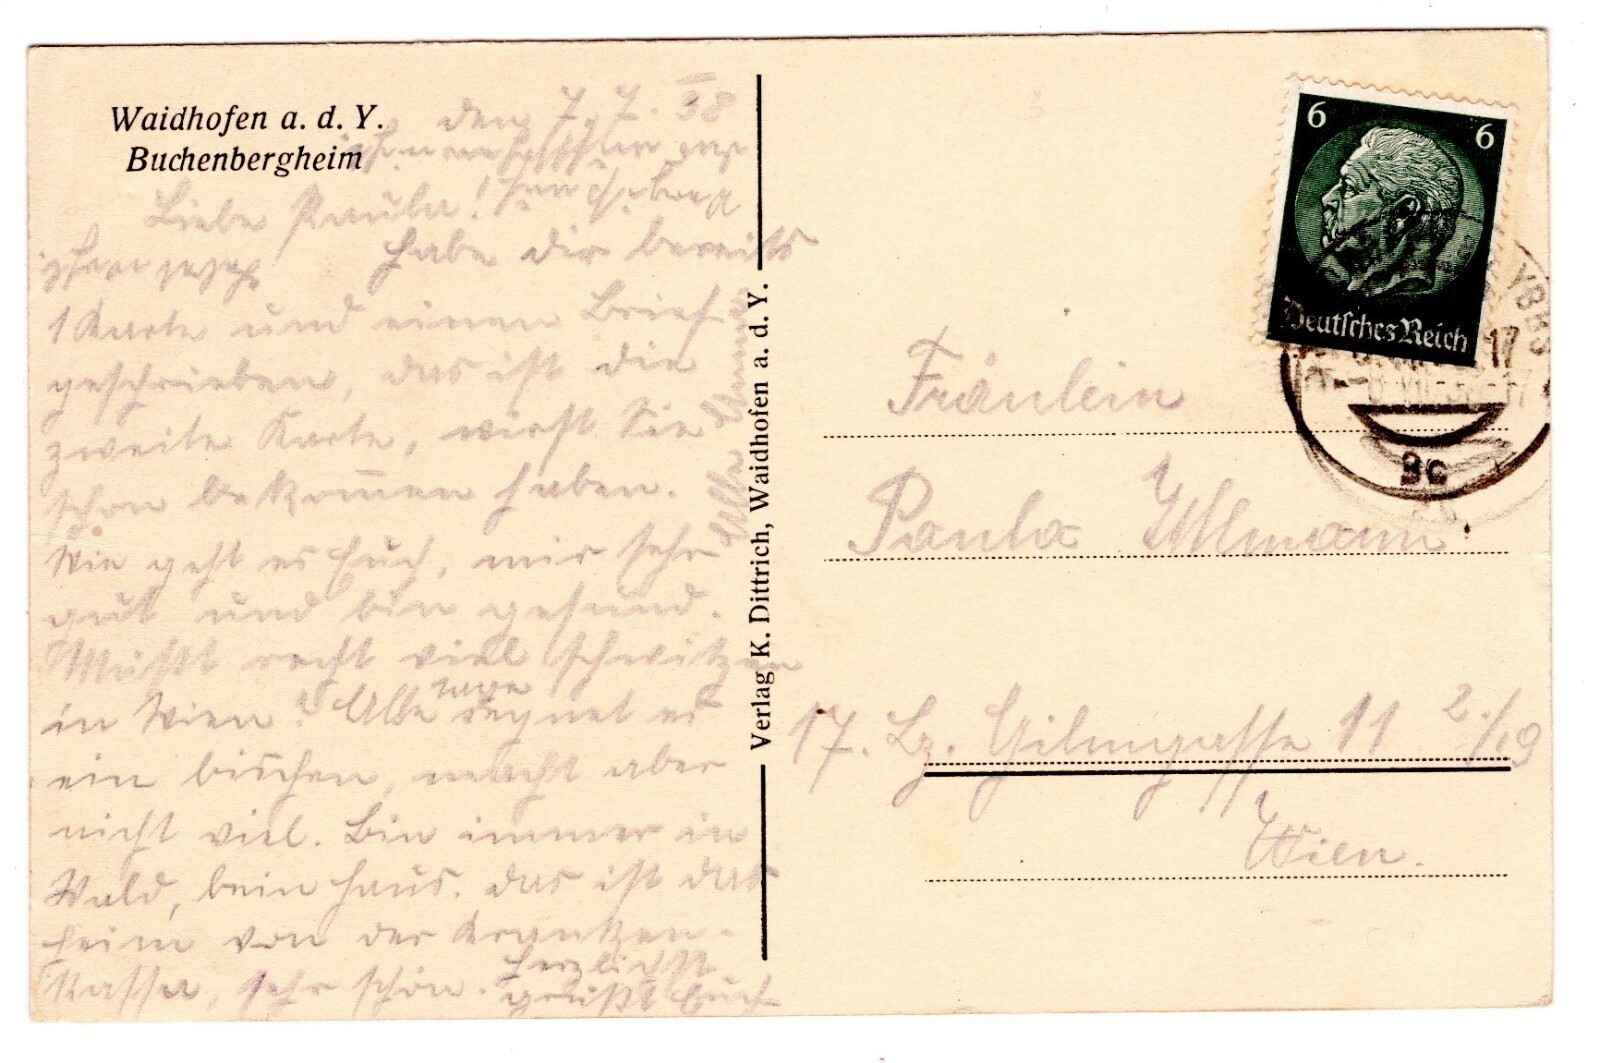 Waidhofen a. d. Y.
Buchenbergheim
den 7. 7. 38
Liebe Paula!
habe dir bereits
1 Karte und einen Brief
geschrieben, das ist die
zweite Karte, wirst Sie
schon bekom̅en haben.
Wie geht es Euch, mir sehr
gut und bin gesund.
Müßt recht viel schwitzen
in Wien? Alle tage regnet es
ein bischen, macht aber
nicht viel. Bin immer in
Wald, bein Haus. das ist das
Heim von der Kranken-
Kassa, sehr schön. Herzlichst
grüßt Euch
Verlag K. Dittrich, Waidhofen a. d. Y.
6 6
Deutsches Reich
YBBS
17
3c
Fräulein
Paula Ullmann
17. Bz. Gilmgasse 11 2./19
Wien.